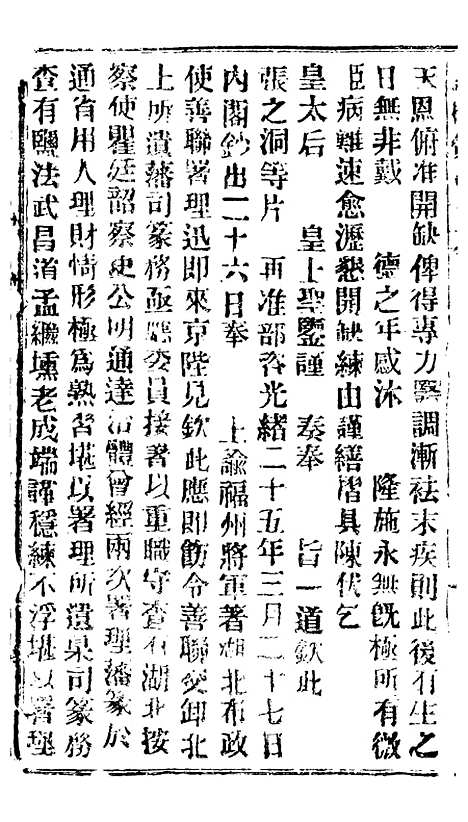 天恩俯准開缺俾得專力醫調漸袪末疾則此後有生之
日無非戴　　德之年感沐　　隆施永無旣極所有微
臣病難速愈瀝懇開缺緣由謹繕摺具陳伏乞
皇太后　　皇上聖鑒謹　　奏奉　　旨一道欽此
張之洞等片　　再准部咨光緒二十五年三月二十七日
內閣鈔出二十六日奉　　上諭福州將軍著湖北布政
使善聯署理迅卽來京陛見欽此應卽飭令善聯交卸北
上所遺藩司篆務亟應委員接署以重職守查有湖北按
察使瞿廷韶察吏公明通達治體曾經兩次署理藩篆於
通省用人理財情形極爲熟習堪以署理所遺臬司篆務
查有鹽法武昌道孟繼壎老成端謹穩練不浮堪以署理